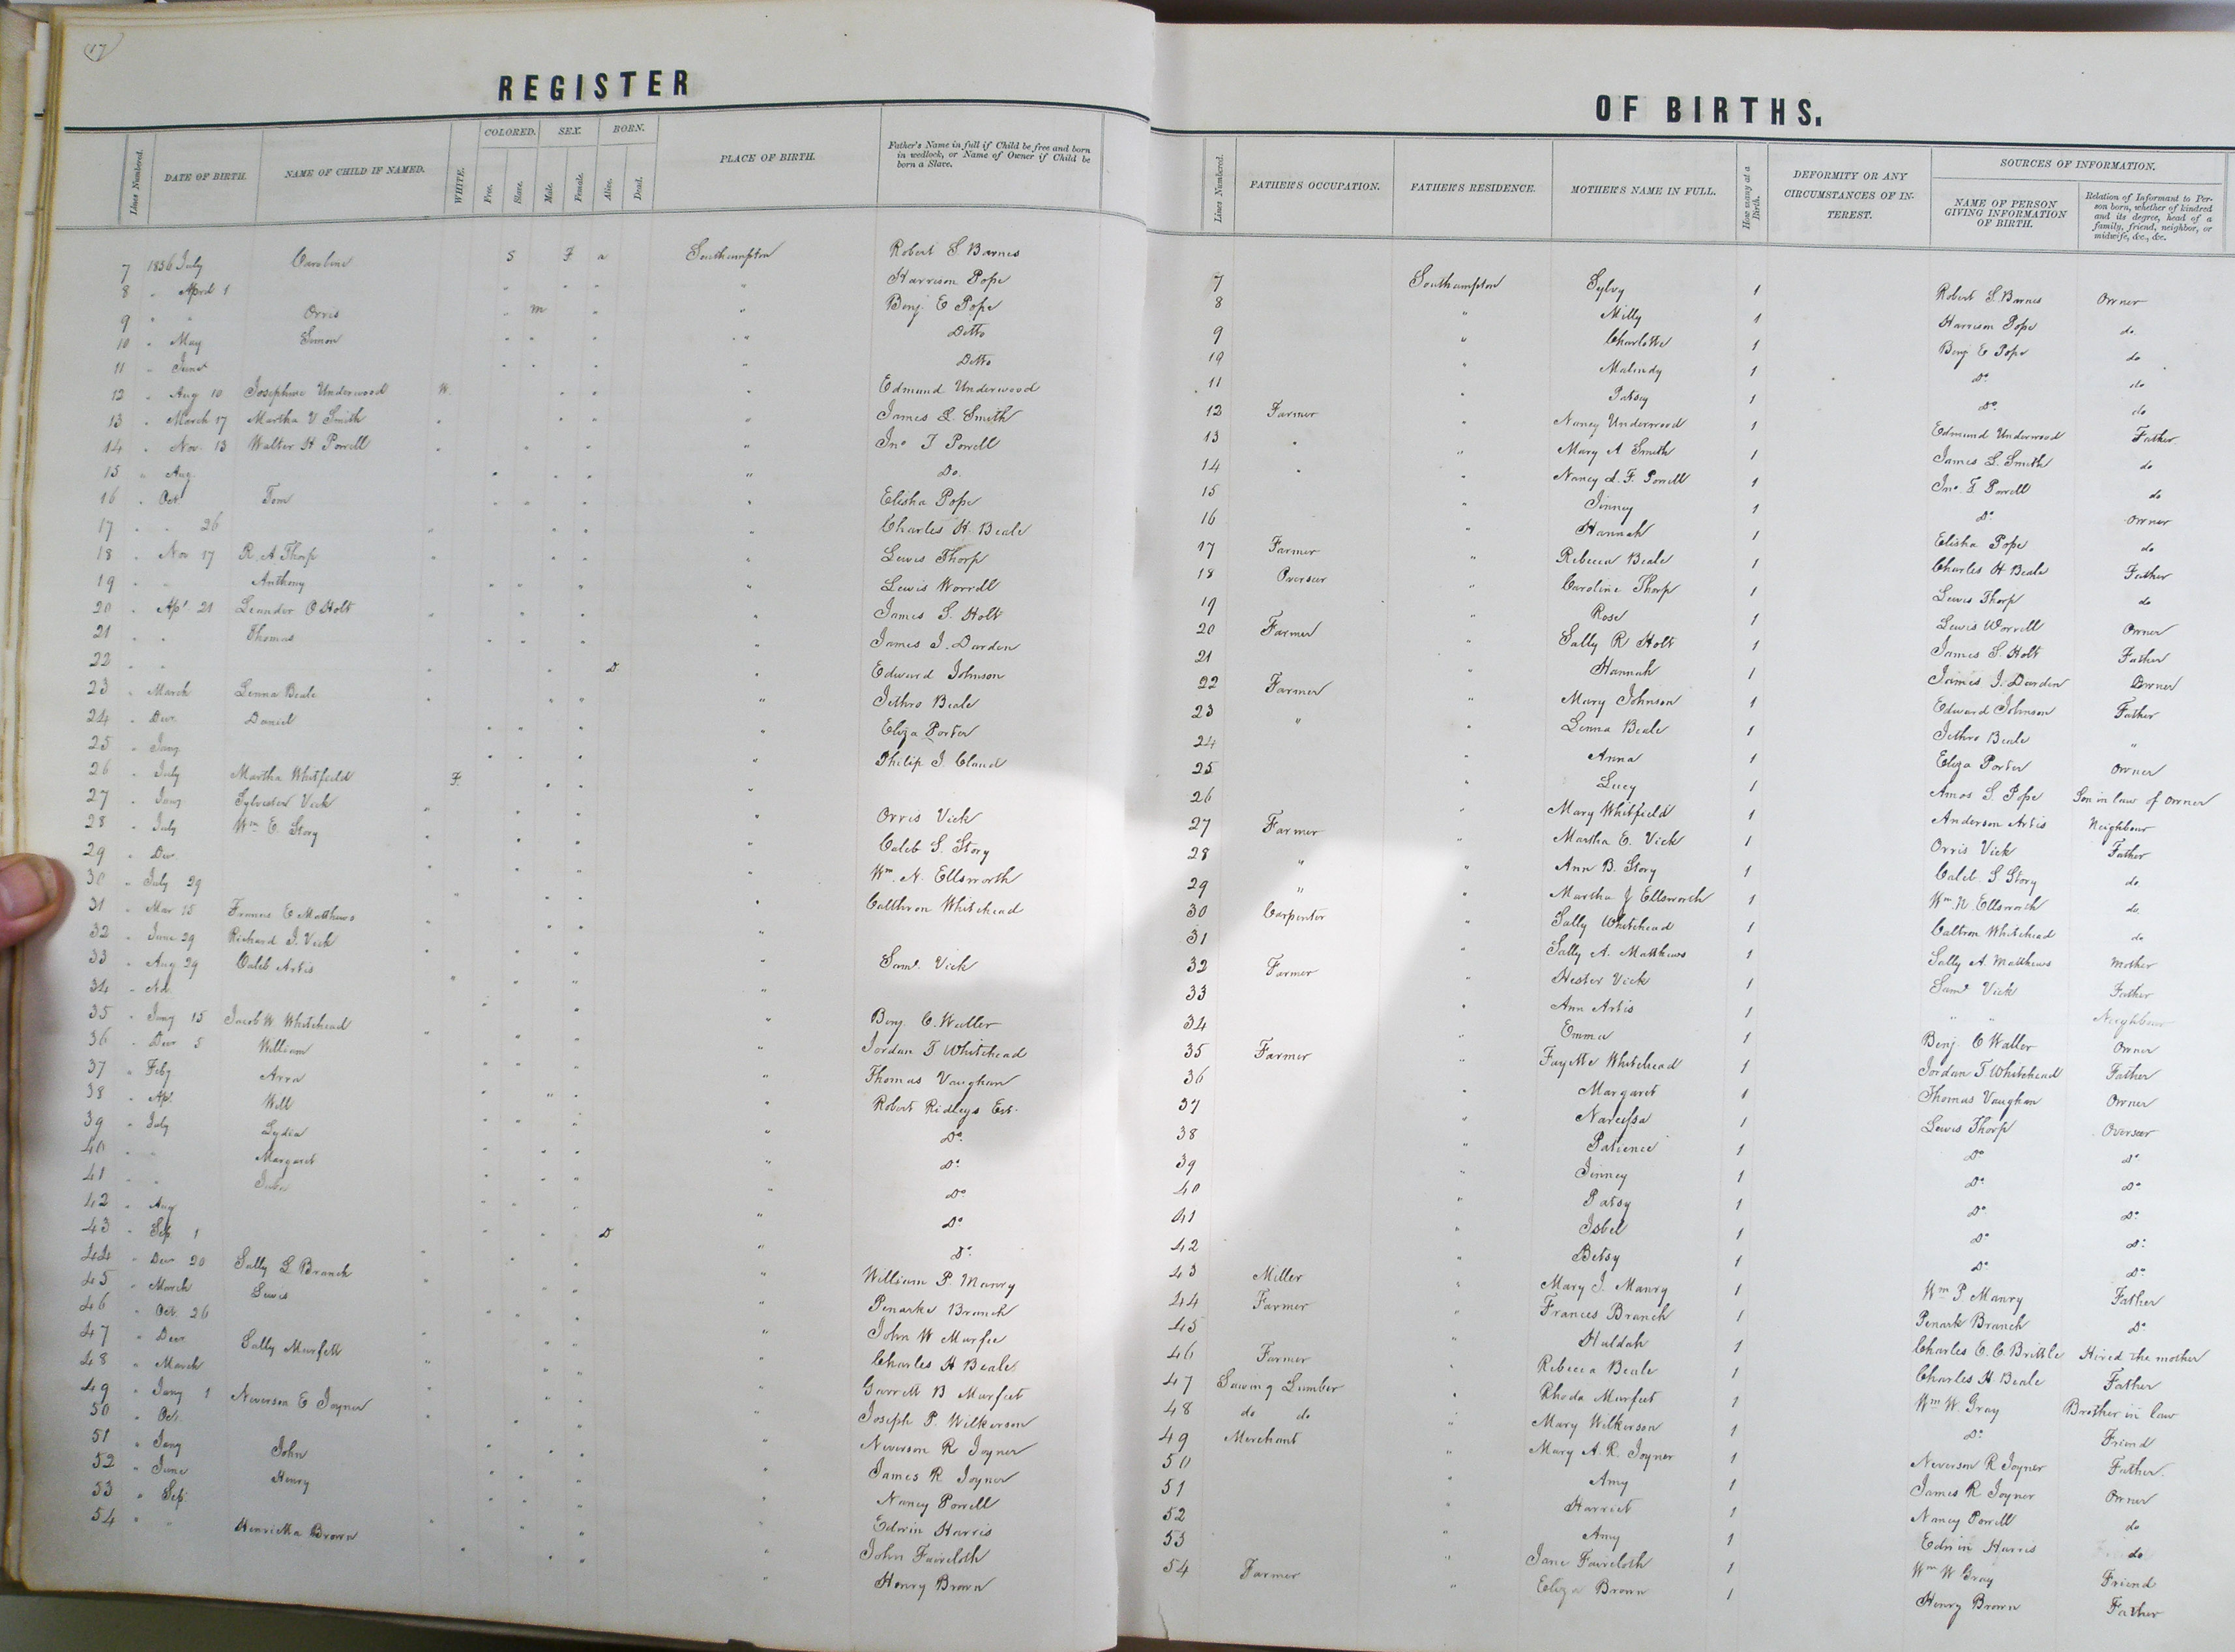 17
REGISTER
Lines Numbered. DATE OF BIRTH. NAME OF CHILD IF NAMED. WHITE. COLORED. Free. Slave. SEX. Male. Female. BORN. Alive. Dead. PLACE OF BIRTH. Father's Name in full if Child be free and born in wedlock, or Name of Owner if Child be born a Slave.
7 1856 July Caroline S F a Southampton Robert S. Barnes
8 " April 1 " " " " Harrison Pope
9 " " Orris " m " " Benj. E Pope
10 " May Simon " " " " Ditto
11 " June " " " " Ditto
12 " Aug 10 Josephine Underwood W. " " " Edmund Underwood
13 " March 17 Martha V Smith " " " " James L. Smith
14 " Nov. 13 Walter H Powell " " " " Jno T Powell
15 " Aug " " " " Do.
16 " Oct Tom " " " " Elisha Pope
17 " " 26 " " " " Charles H. Beale
18 " Nov 17 R. A Thorp " " " " Lewis Thorp
19 " " Anthony " " " " Lewis Worrell
20 " Apl 21 Leander O Holt " " " " James S. Holt
21 " " Thomas " " " " James J. Darden
22 " " " " D. " Edward Johnson
23 " March Lenna Beale " " " " Jethro Beale
24 " Decr. Daniel " " " " Eliza Porter
25 " Jany " " " " Philip J. Claud
26 " July Martha Whitfield F. " " "
27 " Jany Sylvester Vick " " " " Orris Vick
28 " July Wm E. Story " " " " Caleb S. Story
29 " Dec. " " " " Wm. N. Ellsworth
30 " July 29 " " " " Calthron Whitehead
31 " Mar 15 Francis E Matthews " " " "
32 " June 29 Richard J. Vick " " " " Saml. Vick
33 " Aug 29 Caleb Artis " " " "
34 " " " " " Benj. C. Waller
35 " Jany 15 Jacob W. Whitehead " " " " Jordan T Whitehead
36 " Decr 5 William " " " " Thomas Vaughan
37 " Feby Arra " " " " Robert Ridleys Est.
38 " Apl. Will " " " " Do.
39 " July Lydia " " " " Do.
40 " " Margaret " " " " Do.
41 " " " " " " Do.
42 " Aug " " D " Do.
43 " Sep 1 " " " " William P. Manry
44 " Decr 20 Sally L Branch " " " " Penarke Branch
45 " March Lewis " " " " John W. Murfee
46 " Oct. 26 " " " " Charles H Beale
47 " Decr Sally Murfett " " " " Garrett B Murfeet
48 " March " " " " Joseph P. Wilkerson
49 " Jany 1 Neverson E Joyner " " " " Neverson R Joyner
50 " Oct. " " " " James R. Joyner
51 " Jany John " " " " Nancy Powell
52 " June Henry " " " " Edwin Harris
53 " Sep " " " " John Faircloth
54 " " Henrietta Brown " " " " Henry Brown
OF BIRTHS.
Lines Numbered. FATHER'S OCCUPATION. FATHER'S RESIDENCE. MOTHER'S NAME IN FULL. How many at a Birth. DEFORMITY OR ANY CIRCUMSTANCES OF INTEREST. SOURCES OF INFORMATION. NAME OF PERSON GIVING INFORMATION OF BIRTH. Relation of Informant to Person born, whether of kindred and its degree, head of a family, friend, neighbor, or midwife, &c., &c.
7 Southampton Sylvy 1 Robert S. Barnes Owner
8 " Milly 1 Harrison Pope do
9 " Charlotte 1 Benj E Pope do
10 " Malindy 1 Do. do
11 " Patsey 1 Do. do
12 Farmer " Nancy Underwood 1 Edmund Underwood Father
13 " " Mary A Smith 1 James L. Smith do
14 " " Nancy d. F. Powell 1 Jno. T. Powell do
15 " Jinney 1 Do. Owner
16 " Hannah 1 Elisha Pope do
17 Farmer " Rebecca Beale 1 Charles H Beale Father
18 Overseer " Caroline Thorp 1 Lewis Thorp do
19 " Rose 1 Lewis Worrell Owner
20 Farmer " Sally R Holt 1 James S. Holt Father
21 " Hannah 1 James J. Darden Owner
22 Farmer " Mary Johnson 1 Edward Johnson Father
23 " " Lenna Beale 1 Jethro Beale "
24 " Anna 1 Eliza Porter Owner
25 " Lucy 1 Amos S. Pope Son in law of owner
26 " Mary Whitfield 1 Anderson Artis Neighbour
27 Farmer " Martha E. Vick 1 Orris Vick Father
28 " " Ann B. Story 1 Caleb S Story do
29 " " Martha J Ellsworth 1 Wm. N. Ellsworth do
30 Carpenter " Sally Whitehead 1 Caltron Whitehead do
31 " Sally A. Matthews 1 Sally A. Matthews Mother
32 Farmer " Hester Vick 1 Saml Vick Father
33 " Ann Artis 1 " " Neighbour
34 " Emma 1 Benj C Waller Owner
35 Farmer " Fayette Whitehead 1 Jordan T. Whitehead Father
36 " Margaret 1 Thomas Vaughan Owner
37 " Narcissa 1 Lewis Thorp Overseer
38 " Patience 1 Do Do
39 " Jinney 1 Do Do
40 " Patsy 1 Do Do
41 " Isbel 1 Do Do
42 " Betsy 1 Do Do
43 Miller " Mary J. Manry 1 Wm P Manry Father
44 Farmer " Frances Branch 1 Penark Branch Do
45 " Huldah 1 Charles E. C. Brittle Hired the mother
46 Farmer " Rebecca Beale 1 Charles H Beale Father
47 Sawing Lumber " Rhoda Murfeet 1 Wm W. Gray Brother in law
48 do do " Mary Wilkerson 1 Do. Friend
49 Merchant " Mary A. R. Joyner 1 Neverson R Joyner Father.
50 " Amy 1 James R Joyner Owner
51 " Harriet 1 Nancy Powell do
52 " Amy 1 Edwin Harris do
53 " Jane Faircloth 1 Wm W Gray Friend
54 Farmer " Eliza Brown 1 Henry Brown Father